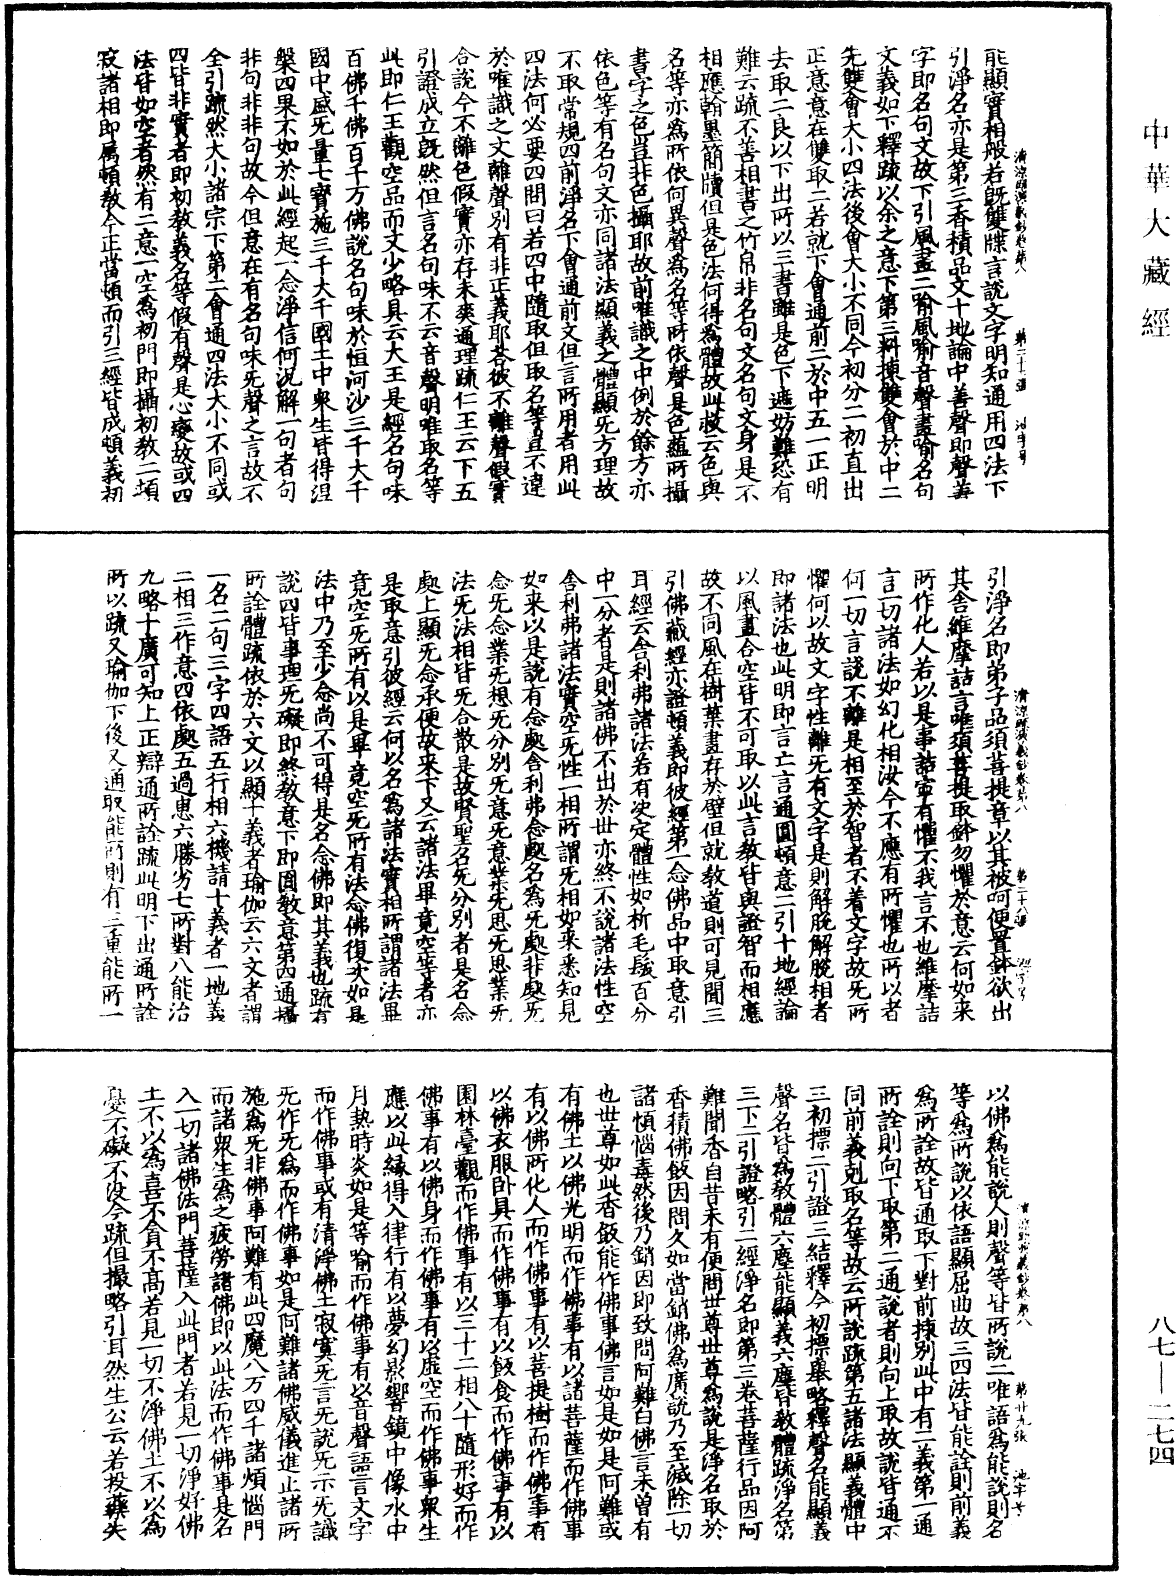 中華大藏經
能顯實相般若旣雙牒言說文字明知通用四法下
引淨名亦是第三香積品文十地論中善聲即聲善
字即名句文故下引風畫二喻風喻音聲畫喻名句
文義如下釋疏以余之意下第三料揀雙會於中二
先雙會大小四法後會大小不同今初分二初直出
正意意在雙取二若就下會通前二於中五一正明
去取二良以下出所以三書雖是色下遮妨難恐有
難云疏不善相書之竹帛非名句文名句文身是不
相應翰墨簡牘但是色法何得爲體故此救云色與
名等亦爲所依何異聲爲名等所依聲是色蘊所攝
書字之色豈非色攝耶故前唯識之中例於餘方亦
依色等有名句文亦同諸法顯義之體顯无方理故
不取常規四前淨名下會通前文但言所用者用此
四法何必要四問曰若四中隨取但取名等豈不違
於唯識之文離聲別有非正義耶荅彼不離聲假實
合說今不離色假實亦存未爽通理疏仁王云下五
引證成立旣然但言名句味不云音聲明唯取名等
此即仁王觀空品而文少略具云大王是經名句味
百佛千佛百千万佛說名句味於恒河沙三千大千
國中盛无量七寶施三千大千國土中衆生皆得涅
槃四果不如於此經起一念淨信何況解一句者句
非句非非句故今但意在有名句味无聲之言故不
全引疏然大小諸宗下第二會通四法大小不同或
四皆非實者即初教義名等假有聲是心變故或四
法皆如空者然有二意一空爲初門即攝初教二頓
寂諸相即属頓教今正當頓而引三經皆成頓義初
引淨名即弟子品須菩提章以其被呵便置鉢欲出
其舍維摩詰言唯須菩提取鉢勿懼於意云何如來
所作化人若以是事詰寧有懼不我言不也維摩詰
言一切諸法如幻化相汝今不應有所懼也所以者
何一切言說不離是相至於智者不着文字故无所
懼何以故文字性離无有文字是則解脫解脫相者
即諸法也此明即言亡言通圓頓意二引十地經論
以風畫合空皆不可取以此言教皆與證智而相應
故不同風在樹葉畫存於壁但就教道則可見聞三
引佛藏經亦證頓義即彼經第一念佛品中取意引
耳經云舍利弗諸法若有決定體性如析毛髮百分
中一分者是則諸佛不出於世亦終不說諸法性空
舍利弗諸法實空无性一相所謂无相如來悉知見
如來以是說有念處舍利弗念處名爲无處非處无
念无念業无想无分別无意无意業无思无思業无
法无法相皆无合散是故賢聖名无分別者是名念
處上顯无念承便故來下又云諸法畢竟空等者亦
是取意引彼經云何以名爲諸法實相所謂諸法畢
竟空无所有以是畢竟空无所有法念佛復次如是
法中乃至少念尚不可得是名念佛即其義也疏有
說四皆事理无礙即終教意下即圓教意第四通攝
所詮體疏依於六文以顯十義者瑜伽云六文者謂
一名二句三字四語五行相六機請十義者一地義
二相三作意四依處五過患六勝劣七所對八能治
九略十廣可知上正辯通所詮疏此明下出通所詮
所以疏又瑜伽下後又通取能所則有三重能所一
以佛爲能說人則聲等皆所說二唯語爲能說則名
等爲所說以依語顯屈曲故三四法皆能詮則前義
爲所詮故皆通取下對前揀別此中有二義第一通
所詮則向下取第二通說者則向上取故說皆通不
同前義剋取名等故云所說疏第五諸法顯義體中
三初標二引證三結釋今初標舉略釋聲名能顯義
聲名皆爲教體六塵能顯義六塵皆教體疏淨名第
三下二引證略引二經淨名即第三卷菩薩行品因阿
難聞香自昔未有便問世尊世尊爲說是淨名取於
香積佛飯因問久如當銷佛爲廣說乃至滅除一切
諸煩惱毒然後乃銷因即致問阿難白佛言未曽有
也世尊如此香飯能作佛事佛言如是如是阿難或
有佛土以佛光明而作佛事有以諸菩薩而作佛事
有以佛所化人而作佛事有以菩提樹而作佛事有
以佛衣服卧具而作佛事有以飯食而作佛事有以
園林臺觀而作佛事有以三十二相八十隨形好而作
佛事有以佛身而作佛事有以虚空而作佛事衆生
應以此緣得入律行有以夢幻影響鏡中像水中
月熱時炎如是等喻而作佛事有以音聲語言文字
而作佛事或有清淨佛土寂寞无言无說无示无識
无作无爲而作佛事如是阿難諸佛威儀進止諸所
施爲无非佛事阿難有此四魔八万四千諸煩惱門
而諸衆生爲之疲勞諸佛即以此法而作佛事是名
入一切諸佛法門菩薩入此門者若見一切淨好佛
土不以爲喜不貪不高若見一切不淨佛土不以爲
憂不礙不没今疏但撮略引耳然生公云若投藥失
八七—二七四